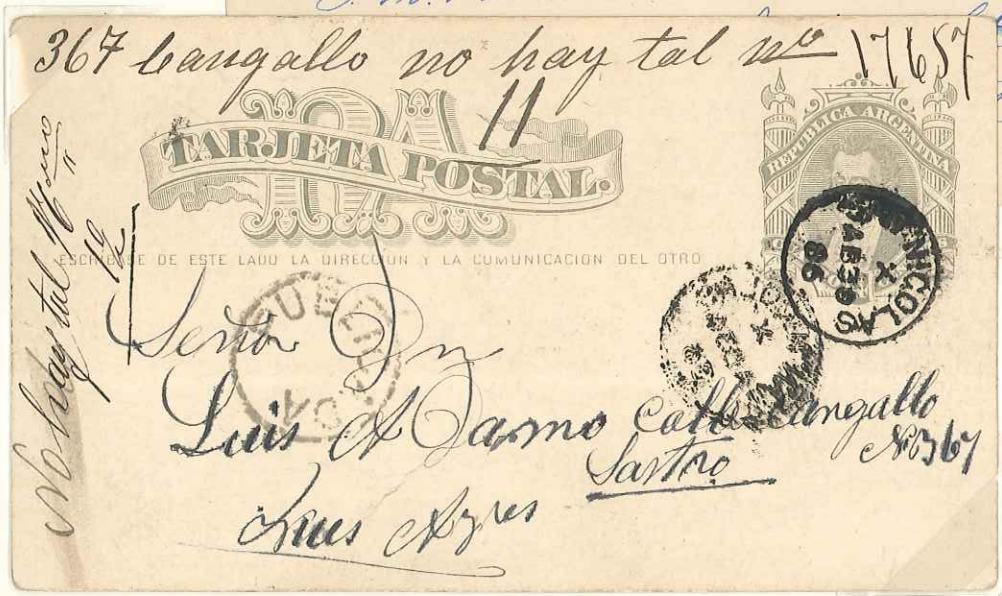 367 Cangallo no hay tal no 17657
11
TARJETA POSTAL.
REPUBLICA ARGENTINA
ESCRIBASE DE ESTE LADO LA DIRECCION Y LA COMUNICACION DEL OTRO
No hay tal No
12
Señor Dn
Luis A Darmo Calle Cangallo
No 367
Sastre
Bues Ayres
PUBLICADA
NICOLAS
AB 30
86